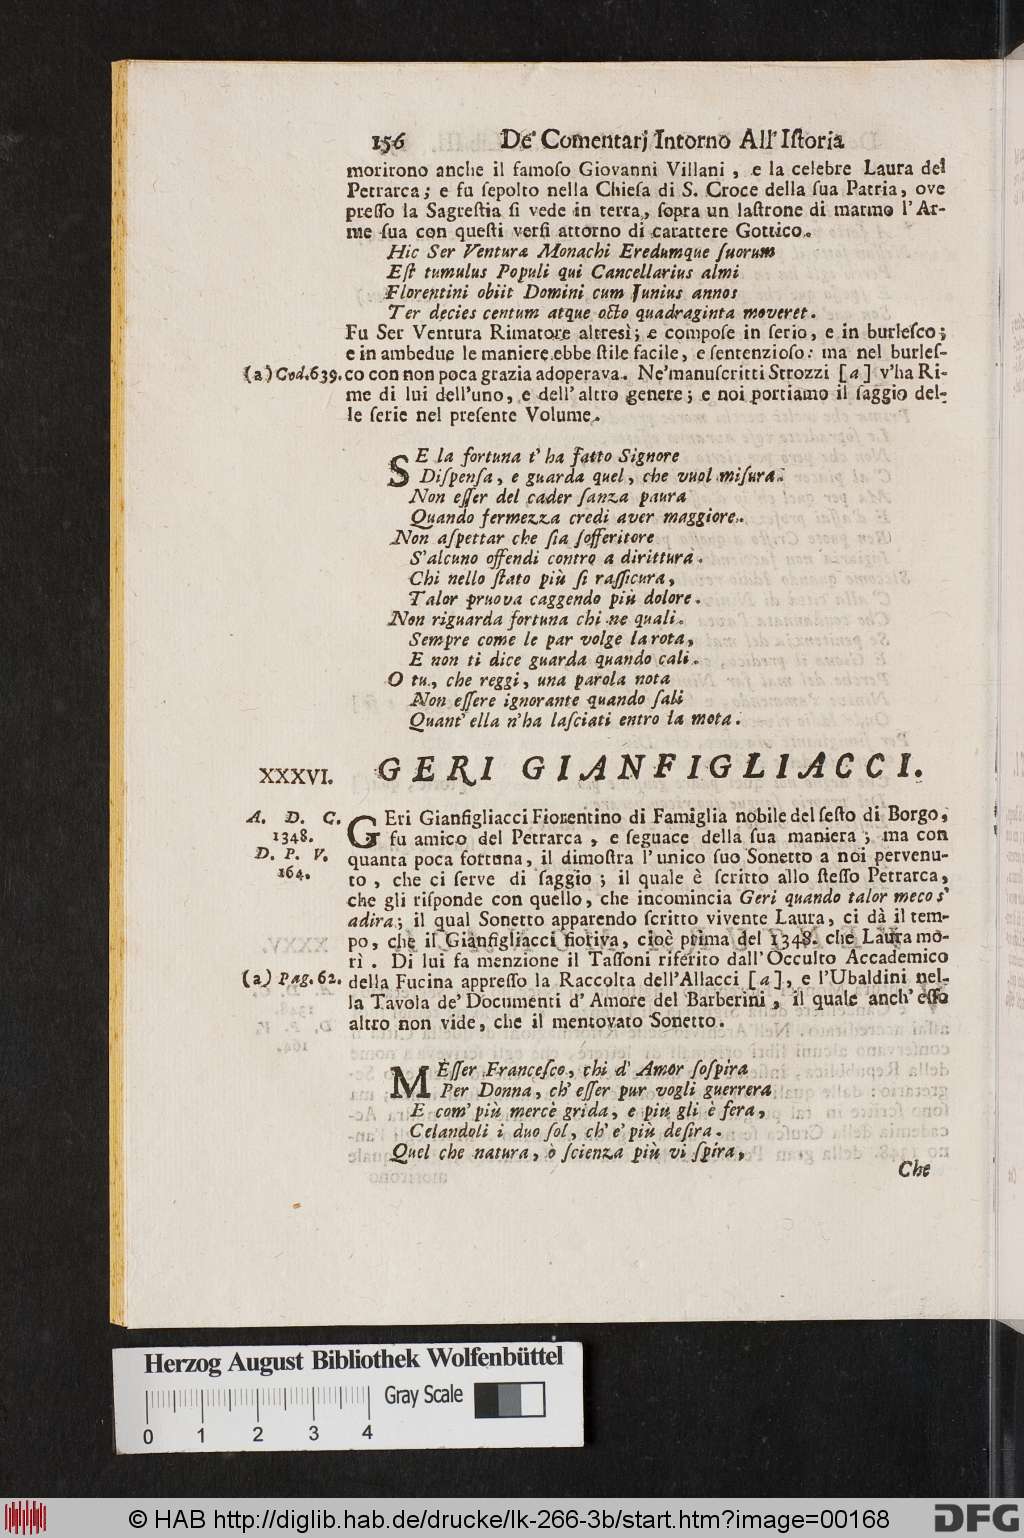 156 De' Comentarj Intorno All' Iſtoria
morirono anche il famoſo Giovanni Villani, e la celebre Laura del
Petrarca; e fu ſepolto nella Chieſa di S. Croce della ſua Patria, ove
preſſo la Sagreſtia ſi vede in terra, ſopra un laſtrone di marmo l'Ar-
me ſua con queſti verſi attorno di carattere Gottico.
Hic Ser Venturæ Monachi Eredumque ſuorum
Eſt tumulus Populi qui Cancellarius almi
Florentini obiit Domini cum Junius annos
Ter decies centum atque octo quadraginta moveret.
Fu Ser Ventura Rimatore altresì; e compoſe in ſerio, e in burleſco;
e in ambedue le maniere ebbe ſtile facile, e ſentenzioſo: ma nel burleſ-
(a) Cod.639. co con non poca grazia adoperava. Ne' manuſcritti Strozzi [a] v'ha Ri-
me di lui dell'uno, e dell' altro genere; e noi portiamo il ſaggio del-
le ſerie nel preſente Volume.
SE la fortuna t' ha fatto Signore
Diſpenſa, e guarda quel, che vuol miſura.
Non eſſer del cader ſanza paura
Quando fermezza credi aver maggiore.
Non aſpettar che ſia ſofferitore
S'alcuno offendi contro a dirittura.
Chi nello ſtato più ſi raſſicura,
Talor pruova caggendo più dolore.
Non riguarda fortuna chi ne quali.
Sempre come le par volge la rota,
E non ti dice guarda quando cali.
O tu, che reggi, una parola nota
Non eſſere ignorante quando ſali
Quant' ella n'ha laſciati entro la mota.
XXXVI. GERI GIANFIGLIACCI.
A. D. C.
1348.
D. P. V.
164.
GEri Gianfigliacci Fiorentino di Famiglia nobile del ſeſto di Borgo,
fu amico del Petrarca, e ſeguace della ſua maniera; ma con
quanta poca fortuna, il dimoſtra l'unico ſuo Sonetto a noi pervenu-
to, che ci ſerve di ſaggio; il quale è ſcritto allo ſteſſo Petrarca,
che gli riſponde con quello, che incomincia Geri quando talor meco s'
adira; il qual Sonetto apparendo ſcritto vivente Laura, ci dà il tem-
po, che il Gianfigliacci fioriva, cioè prima del 1348. che Laura mo-
rì. Di lui fa menzione il Taſſoni riferito dall' Occulto Accademico
(a) Pag. 62. della Fucina appreſſo la Raccolta dell'Allacci [a], e l'Ubaldini nel-
la Tavola de' Documenti d'Amore del Barberini, il quale anch' eſſo
altro non vide, che il mentovato Sonetto.
MEſſer Franceſco, chi d' Amor ſoſpira
Per Donna, ch' eſſer pur vogli guerrera
E com' più mercè grida, e più gli è fera,
Celandoli i duo ſol, ch' e' più deſira.
Quel che natura, o ſcienza più vi ſpira,
Che
Herzog August Bibliothek Wolfenbüttel
Gray Scale
0 1 2 3 4
© HAB http://diglib.hab.de/drucke/lk-266-3b/start.htm?image=00168
DFG